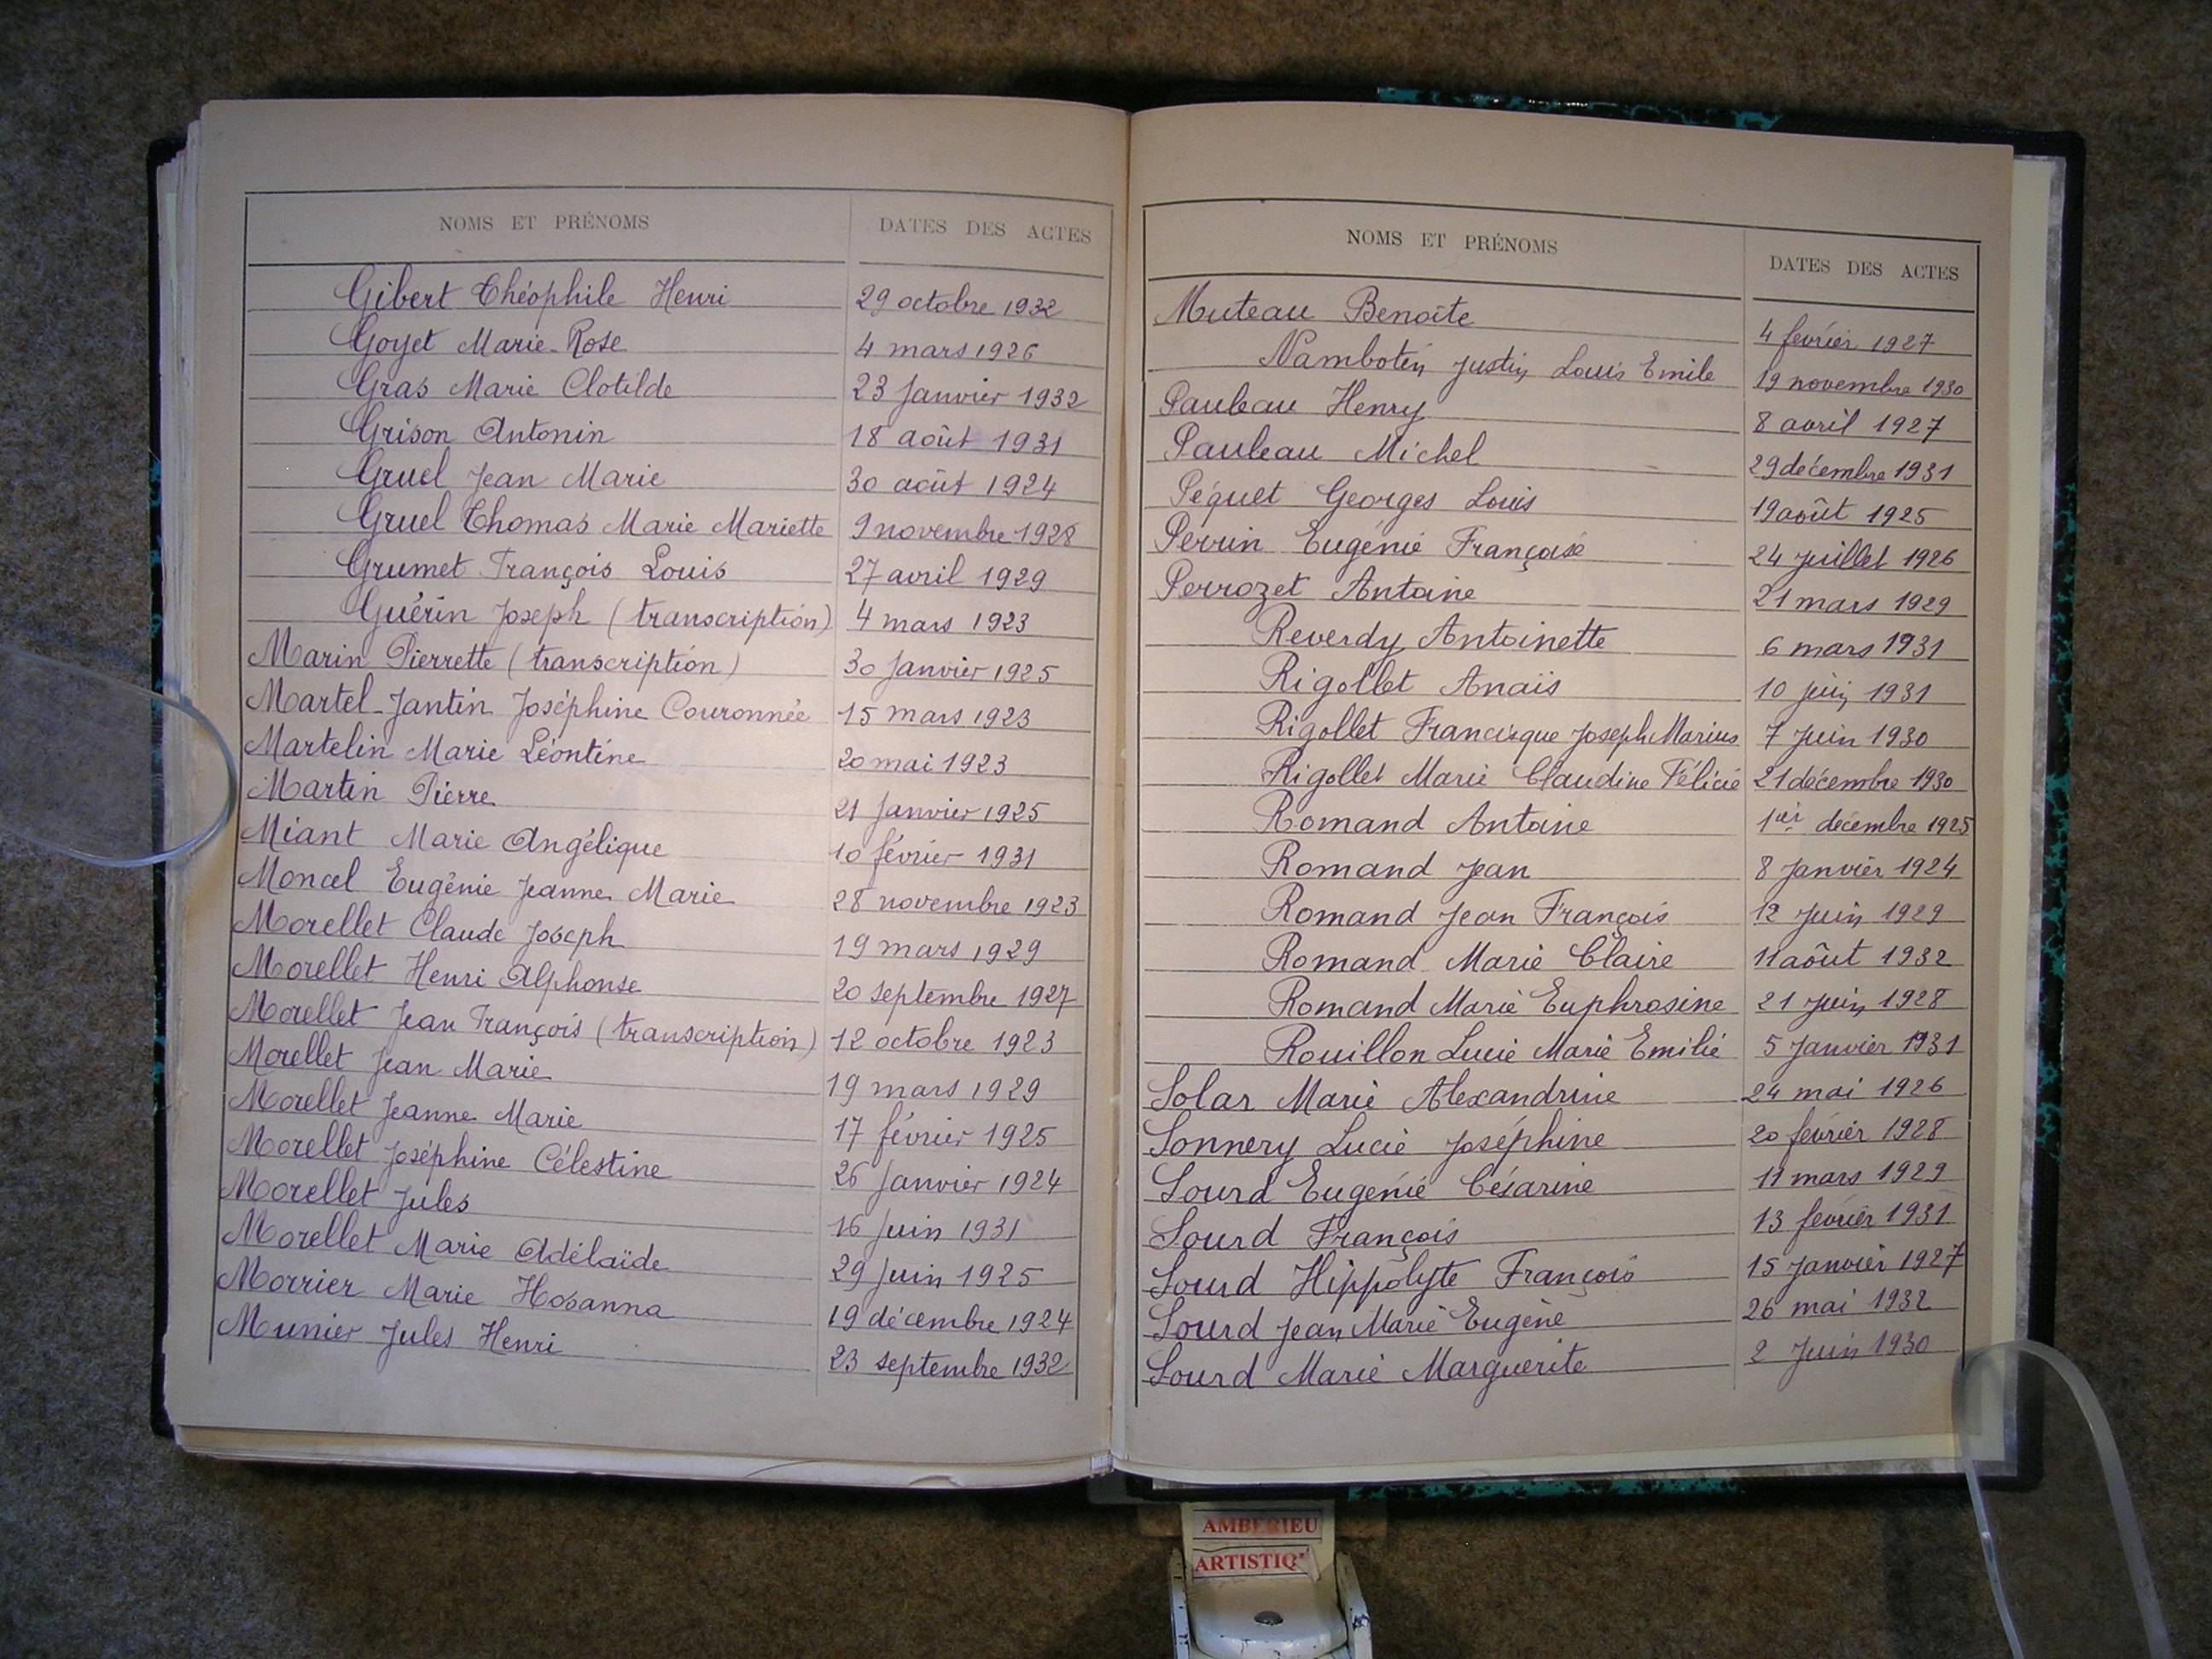 NOMS ET PRÉNOMS DATES DES ACTES
Gibert Théophile Henri 29 octobre 1932
Goyet Marie-Rose 4 mars 1926
Gras Marie Clotilde 23 Janvier 1932
Grison Antonin 18 août 1931
Gruel Jean Marie 30 août 1924
Gruel Thomas Marie Mariette 9 novembre 1928
Grumet François Louis 27 avril 1929
Guérin Joseph (transcription) 4 mars 1923
Marin Pierrette (transcription) 30 Janvier 1925
Martel-Jantin Joséphine Couronnée 15 mars 1923
Martelin Marie Léontine 20 mai 1923
Martin Pierre 21 Janvier 1925
Miant Marie Angélique 10 février 1931
Moncel Eugénie Jeanne Marie 28 novembre 1923
Morellet Claude Joseph 19 mars 1929
Morellet Henri Alphonse 20 septembre 1927
Morellet Jean François (transcription) 12 octobre 1923
Morellet Jean Marie 19 mars 1929
Morellet Jeanne Marie 17 février 1925
Morellet Joséphine Célestine 26 Janvier 1924
Morellet Jules 16 Juin 1931
Morellet Marie Adélaïde 29 Juin 1925
Morrier Marie Hosanna 19 décembre 1924
Munier Jules Henri 23 septembre 1932
NOMS ET PRÉNOMS DATES DES ACTES
Muteau Benoîte 4 février 1927
Nambotin Justin Louis Emile 19 novembre 1930
Pauleau Henry 8 avril 1927
Pauleau Michel 29 décembre 1931
Péquet Georges Louis 19 août 1925
Perrin Eugénie Françoise 24 Juillet 1926
Perrozet Antoine 21 mars 1929
Reverdy Antoinette 6 mars 1931
Rigollet Anaïs 10 Juin 1931
Rigollet Francisque Joseph Marius 7 Juin 1930
Rigollet Marie Claudine Félicie 21 décembre 1930
Romand Antoine 1er décembre 1925
Romand Jean 8 Janvier 1924
Romand Jean François 12 Juin 1929
Romand Marie Claire 11 août 1932
Romand Marie Euphrosine 21 Juin 1928
Rouillon Lucie Marie Emilie 5 Janvier 1931
Solar Marie Alexandrine 24 mai 1926
Sonnery Lucie Joséphine 20 février 1928
Sourd Eugénie Césarine 11 mars 1929
Sourd François 13 février 1931
Sourd Hippolyte François 15 Janvier 1927
Sourd Jean Marie Eugène 26 mai 1932
Sourd Marie Marguerite 2 Juin 1930
AMBERIEU
ARTISTIQ'